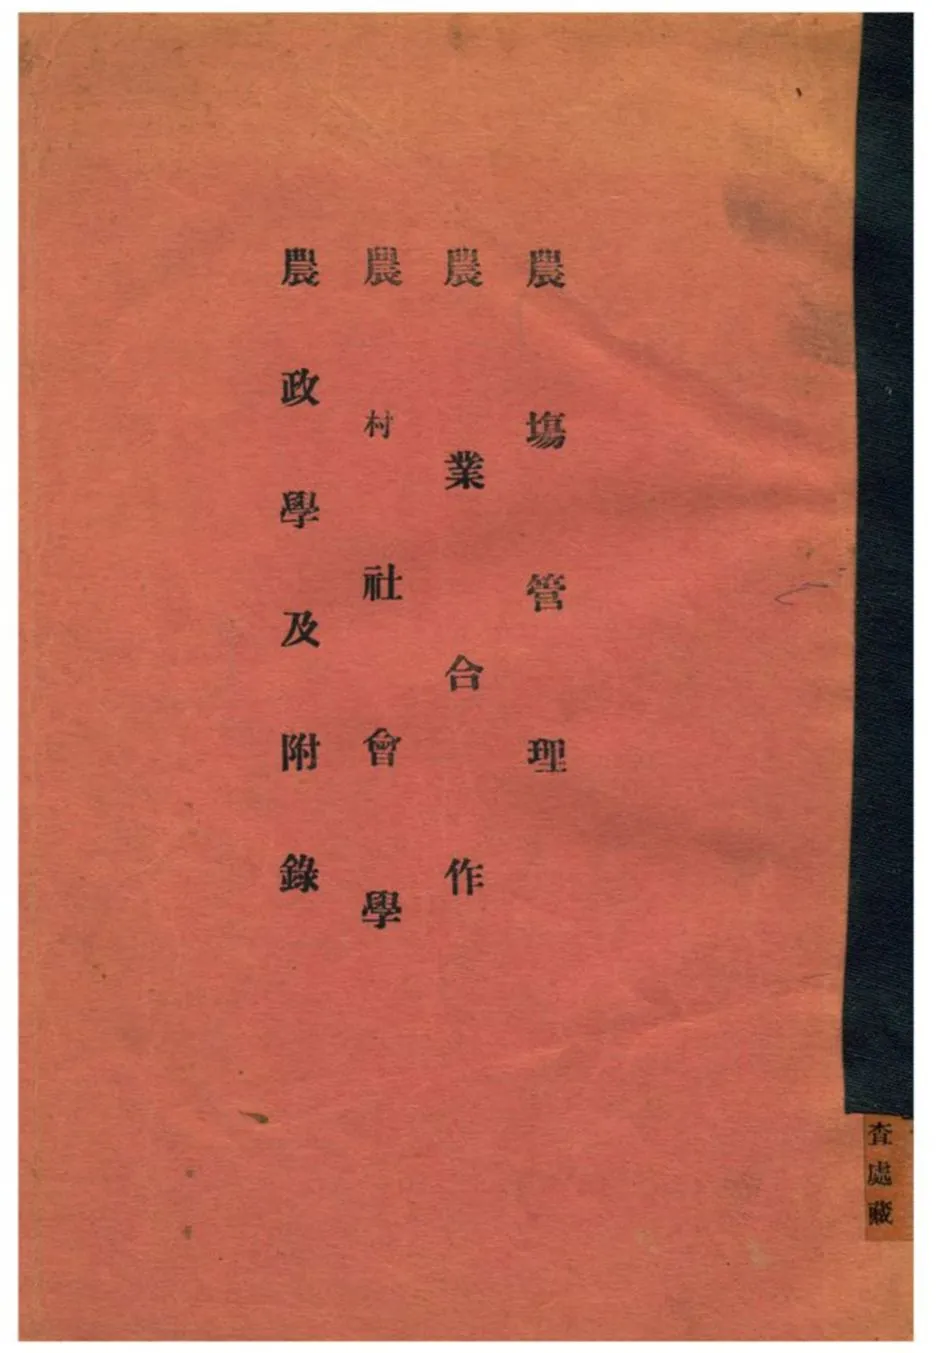 農塲管理
農業合作
農村社會學
農政學及附錄
查處藏